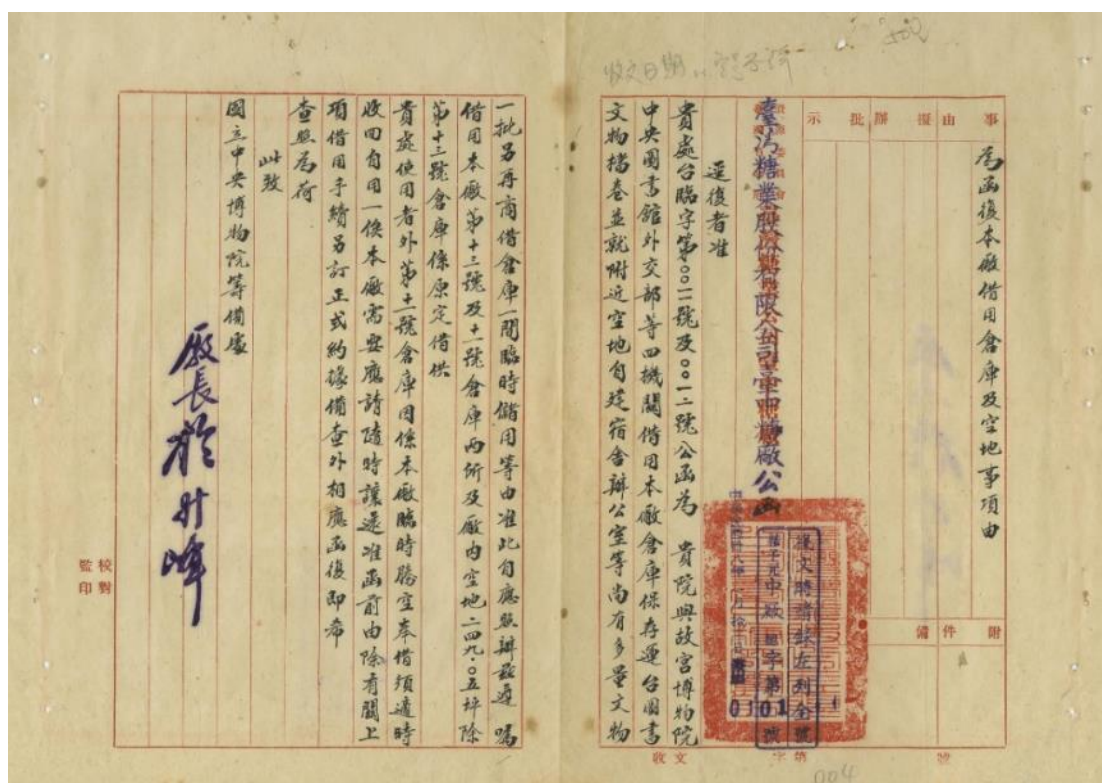 收文日期
事由 擬辦 批示
附件 備
為函復本廠借用倉庫及空地事項由
臺灣糖業股份有限公司臺中糖廠公函
復文時請錄左列全號
逕復者准
貴處台臨字第〇〇一一號及〇〇一二號公函為 貴院與故宮博物院
中央圖書館外交部等四機關借用本廠倉庫保存運台圖書
文物檔卷並就附近空地自建宿舍辦公室等尚有多量文物
一批另再商借倉庫一間臨時儲用等由准此自應照辦茲遵 囑
借用本廠第十三號及十二號倉庫兩所及廠內空地二四九·〇五坪除
第十三號倉庫係原定借供
貴處使用者外第十二號倉庫因係本廠臨時騰空奉借須適時
收回自用一俟本廠需要應請隨時讓還准函前由除有關上
項借用手續另訂正式約據備查外相應函復即希
查照為荷
此致
國立中央博物院籌備處
廠長於升峰
校對
監印
收文 字第 號
004